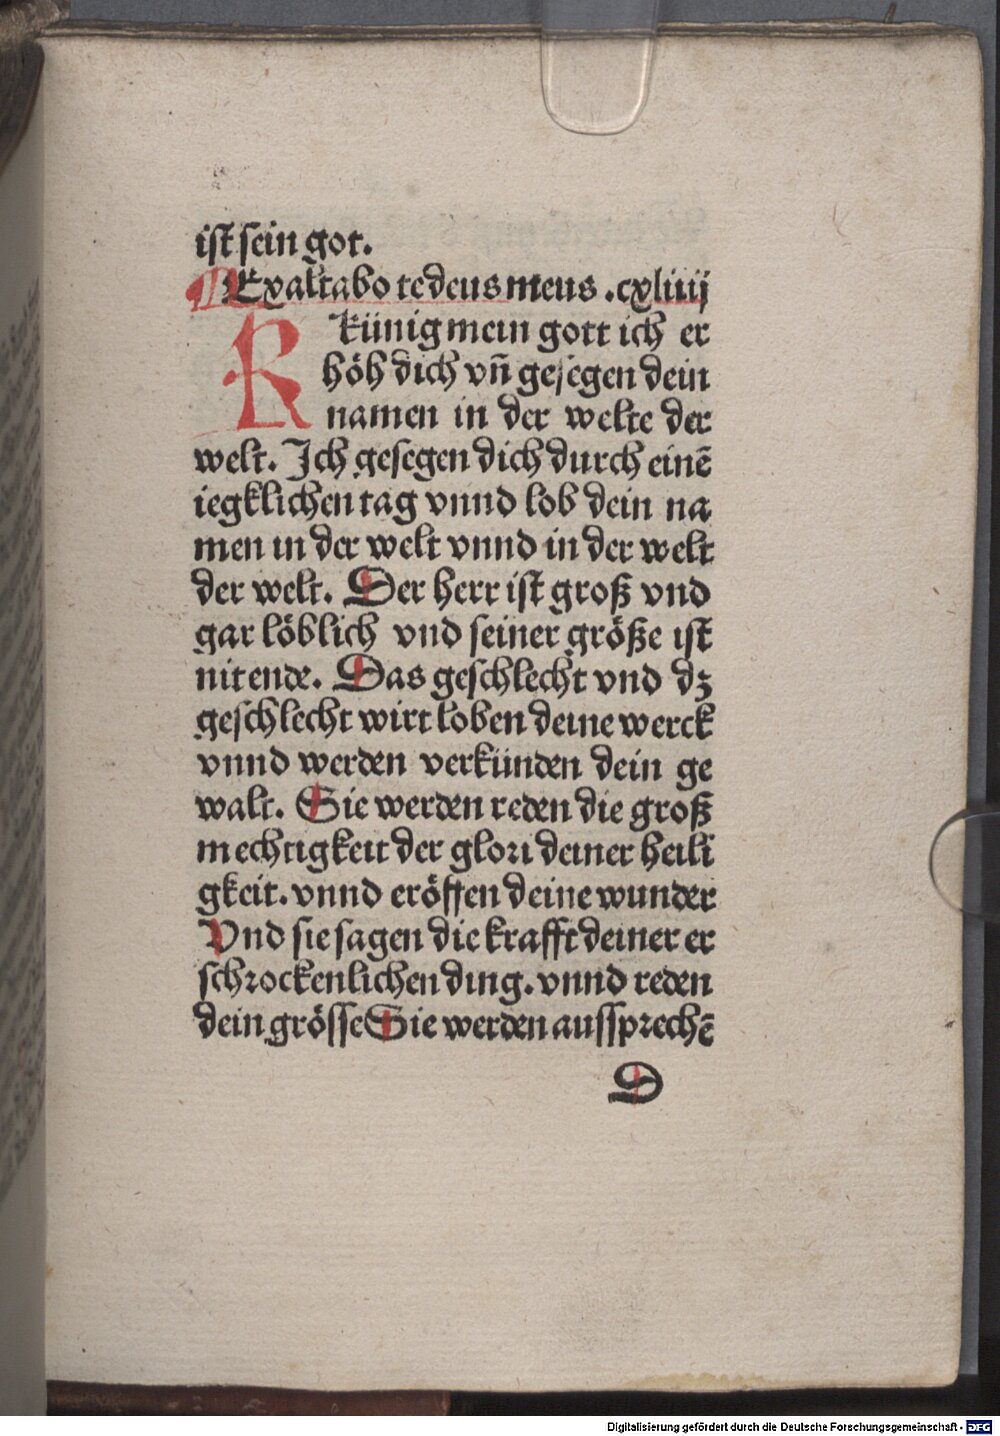 ist sein got.
Exaltabo te deus meus .cxliiij
R künig mein gott ich er
höh dich vñ gesegen dein
namen in der welte der
welt. Ich gesegen dich durch einē
iegklichen tag vnnd lob dein na
men in der welt vnnd in der welt
der welt. Der herr ist groß vnd
gar löblich vnd seiner größe ist
nit ende. Das geschlecht vnd dz
geschlecht wirt loben deine werck
vnnd werden verkünden dein ge
walt. Sie werden reden die groß
mechtigkeit der glori deiner heili
gkeit. vnnd eröffen deine wunder
Vnd sie sagen die krafft deiner er
schrockenlichen ding. vnnd reden
dein grösse Sie werden aussprechē
D
Digitalisierung gefördert durch die Deutsche Forschungsgemeinschaft - DFG